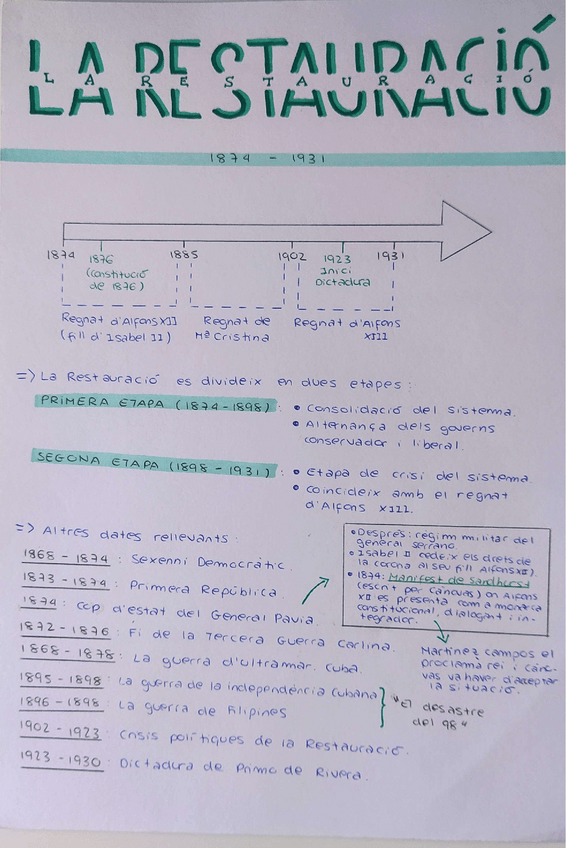 LA RESTAURACIÓ
LA RESTAURACIÓ
1874 - 1931
1874
1876
(Constitució
de 1876)
1885
1902
1923
Inici
Dictadura
1931
Regnat d'Alfons XII
(fill d'Isabel II)
Regnat de
Mª Cristina
Regnat d'Alfons
XIII
=> La Restauració es divideix en dues etapes:
PRIMERA ETAPA (1874-1898):
• Consolidació del sistema.
• Alternança dels governs
conservador i liberal.
SEGONA ETAPA (1898 - 1931):
• Etapa de crisi del sistema.
• Coincideix amb el regnat
d'Alfons XIII.
=> Altres dates rellevants:
1868 - 1874: Sexenni Democràtic.
1873 - 1874: Primera República.
1874: Cop d'estat del General Pavia.
1872 - 1876: Fi de la Tercera Guerra Carlina.
1868 - 1878: La guerra d'ultramar. Cuba.
1895 - 1898: La guerra de la independència cubana
1896 - 1898: La guerra de Filipines
"El desastre
del 98"
1902 - 1923: Crisis polítiques de la Restauració.
1923 - 1930: Dictadura de Primo de Rivera.
• Després: regim militar del
general Serrano.
• Isabel II cedeix els drets de
la corona al seu fill Alfons XII).
• 1874: Manifest de Sandhurst
(escrit per Cánovas) on Alfons
XII es presenta com a monarca
constitucional, dialogant i in-
tegrador.
Martínez Campos el
proclama rei i Càno-
vas va haver d'acceptar
la situació.